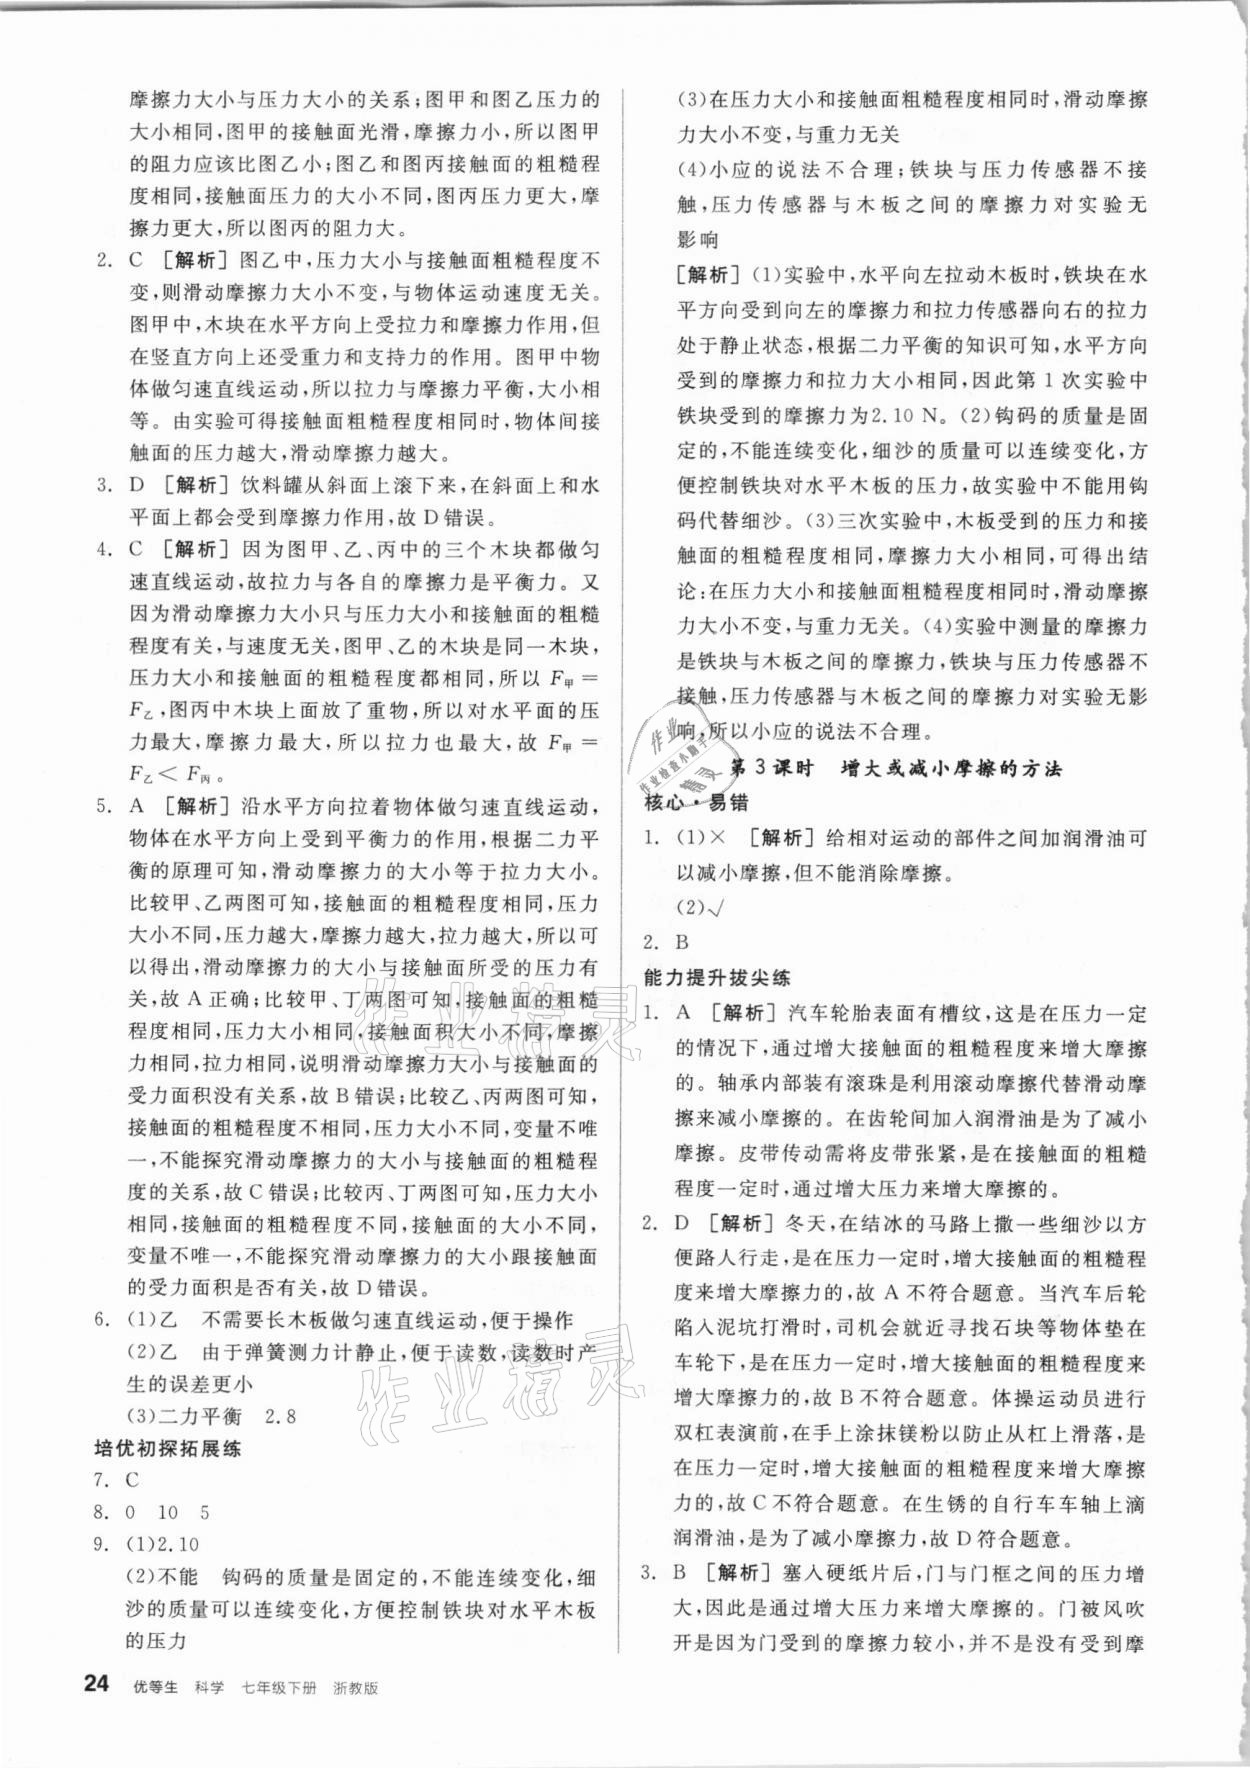 摩擦力大小与压力大小的关系;图甲和图乙压力的
大小相同,图甲的接触面光滑,摩擦力小,所以图甲
的阻力应该比图乙小;图乙和图丙接触面的粗糙程
度相同,接触面压力的大小不同,图丙压力更大,摩
擦力更大,所以图丙的阻力大。
2. C [解析]图乙中,压力大小与接触面粗糙程度不
变,则滑动摩擦力大小不变,与物体运动速度无关。
图甲中,木块在水平方向上受拉力和摩擦力作用,但
在竖直方向上还受重力和支持力的作用。图甲中物
体做匀速直线运动,所以拉力与摩擦力平衡,大小相
等。由实验可得接触面粗糙程度相同时,物体间接
触面的压力越大,滑动摩擦力越大。
3. D [解析]饮料罐从斜面上滚下来,在斜面上和水
平面上都会受到摩擦力作用,故D错误。
4. C [解析]因为图甲、乙、丙中的三个木块都做匀
速直线运动,故拉力与各自的摩擦力是平衡力。又
因为滑动摩擦力大小只与压力大小和接触面的粗糙
程度有关,与速度无关,图甲、乙的木块是同一木块,
压力大小和接触面的粗糙程度都相同,所以 F甲=
F乙,图丙中木块上面放了重物,所以对水平面的压
力最大,摩擦力最大,所以拉力也最大,故 F甲=
F乙<F丙。
5. A [解析]沿水平方向拉着物体做匀速直线运动,
物体在水平方向上受到平衡力的作用,根据二力平
衡的原理可知,滑动摩擦力的大小等于拉力大小。
比较甲、乙两图可知,接触面的粗糙程度相同,压力
大小不同,压力越大,摩擦力越大,拉力越大,所以可
以得出,滑动摩擦力的大小与接触面所受的压力有
关,故A正确;比较甲、丁两图可知,接触面的粗糙
程度相同,压力大小相同,接触面积大小不同,摩擦
力相同,拉力相同,说明滑动摩擦力大小与接触面的
受力面积没有关系,故B错误;比较乙、丙两图可知,
接触面的粗糙程度不相同,压力大小不同,变量不唯
一,不能探究滑动摩擦力的大小与接触面的粗糙程
度的关系,故C错误;比较丙、丁两图可知,压力大小
相同,接触面的粗糙程度不同,接触面的大小不同,
变量不唯一,不能探究滑动摩擦力的大小跟接触面
的受力面积是否有关,故D错误。
6. (1)乙 不需要长木板做匀速直线运动,便于操作
(2)乙 由于弹簧测力计静止,便于读数,读数时产
生的误差更小
(3)二力平衡 2.8
培优初探拓展练
7. C
8. 0 10 5
9. (1)2.10
(2)不能 钩码的质量是固定的,不能连续变化,细
沙的质量可以连续变化,方便控制铁块对水平木板
的压力
24 优等生 科学 七年级下册 浙教版
(3)在压力大小和接触面粗糙程度相同时,滑动摩擦
力大小不变,与重力无关
(4)小应的说法不合理;铁块与压力传感器不接
触,压力传感器与木板之间的摩擦力对实验无
影响
[解析](1)实验中,水平向左拉动木板时,铁块在水
平方向受到向左的摩擦力和拉力传感器向右的拉力
处于静止状态,根据二力平衡的知识可知,水平方向
受到的摩擦力和拉力大小相同,因此第1次实验中
铁块受到的摩擦力为2.10 N。(2)钩码的质量是固
定的,不能连续变化,细沙的质量可以连续变化,方
便控制铁块对水平木板的压力,故实验中不能用钩
码代替细沙。(3)三次实验中,木板受到的压力和接
触面的粗糙程度相同,摩擦力大小相同,可得出结
论:在压力大小和接触面粗糙程度相同时,滑动摩擦
力大小不变,与重力无关。(4)实验中测量的摩擦力
是铁块与木板之间的摩擦力,铁块与压力传感器不
接触,压力传感器与木板之间的摩擦力对实验无影
响,所以小应的说法不合理。
第3课时 增大或减小摩擦的方法
核心·易错
1. (1)× [解析]给相对运动的部件之间加润滑油可
以减小摩擦,但不能消除摩擦。
(2)√
2. B
能力提升拔尖练
1. A [解析]汽车轮胎表面有槽纹,这是在压力一定
的情况下,通过增大接触面的粗糙程度来增大摩擦
的。轴承内部装有滚珠是利用滚动摩擦代替滑动摩
擦来减小摩擦的。在齿轮间加入润滑油是为了减小
摩擦。皮带传动需将皮带张紧,是在接触面的粗糙
程度一定时,通过增大压力来增大摩擦的。
2. D [解析]冬天,在结冰的马路上撒一些细沙以方
便路人行走,是在压力一定时,增大接触面的粗糙程
度来增大摩擦力的,故A不符合题意。当汽车后轮
陷入泥坑打滑时,司机会就近寻找石块等物体垫在
车轮下,是在压力一定时,增大接触面的粗糙程度来
增大摩擦力的,故B不符合题意。体操运动员进行
双杠表演前,在手上涂抹镁粉以防止从杠上滑落,是
在压力一定时,增大接触面的粗糙程度来增大摩擦
力的,故C不符合题意。在生锈的自行车车轴上滴
润滑油,是为了减小摩擦力,故D符合题意。
3. B [解析]塞入硬纸片后,门与门框之间的压力增
大,因此是通过增大压力来增大摩擦的。门被风吹
开是因为门受到的摩擦力较小,并不是没有受到摩
作业精灵
作业精灵
作业
作业检查小助手
精灵